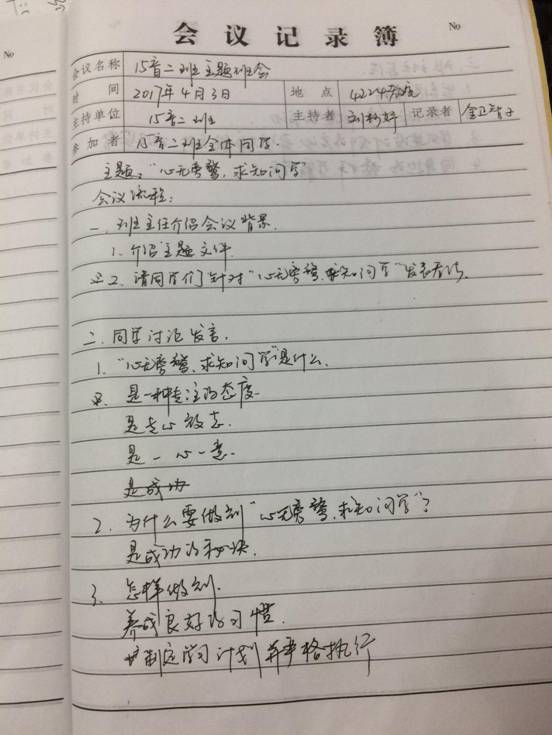 No
会议记录簿
No
会议名称 15音二班主题班会
时间 2017年4月3日 地点 422教室
主持单位 15音二班 主持者 记录者
参加者 15音二班全体同学.
主题："心无旁骛,求知问学"
会议流程：
一.班主任介绍会议背景.
1.介绍主题文件.
2.请同学们针对"心无旁骛,求知问学"发表看法.
二.同学讨论发言.
1."心无旁骛,求知问学"是什么.
是一种专注的态度.
是专心致志.
是一心一意.
是成功
2.为什么要做到"心无旁骛,求知问学"?
是成功的秘诀.
3.怎样做到.
养成良好的习惯.
制定学习计划并严格执行